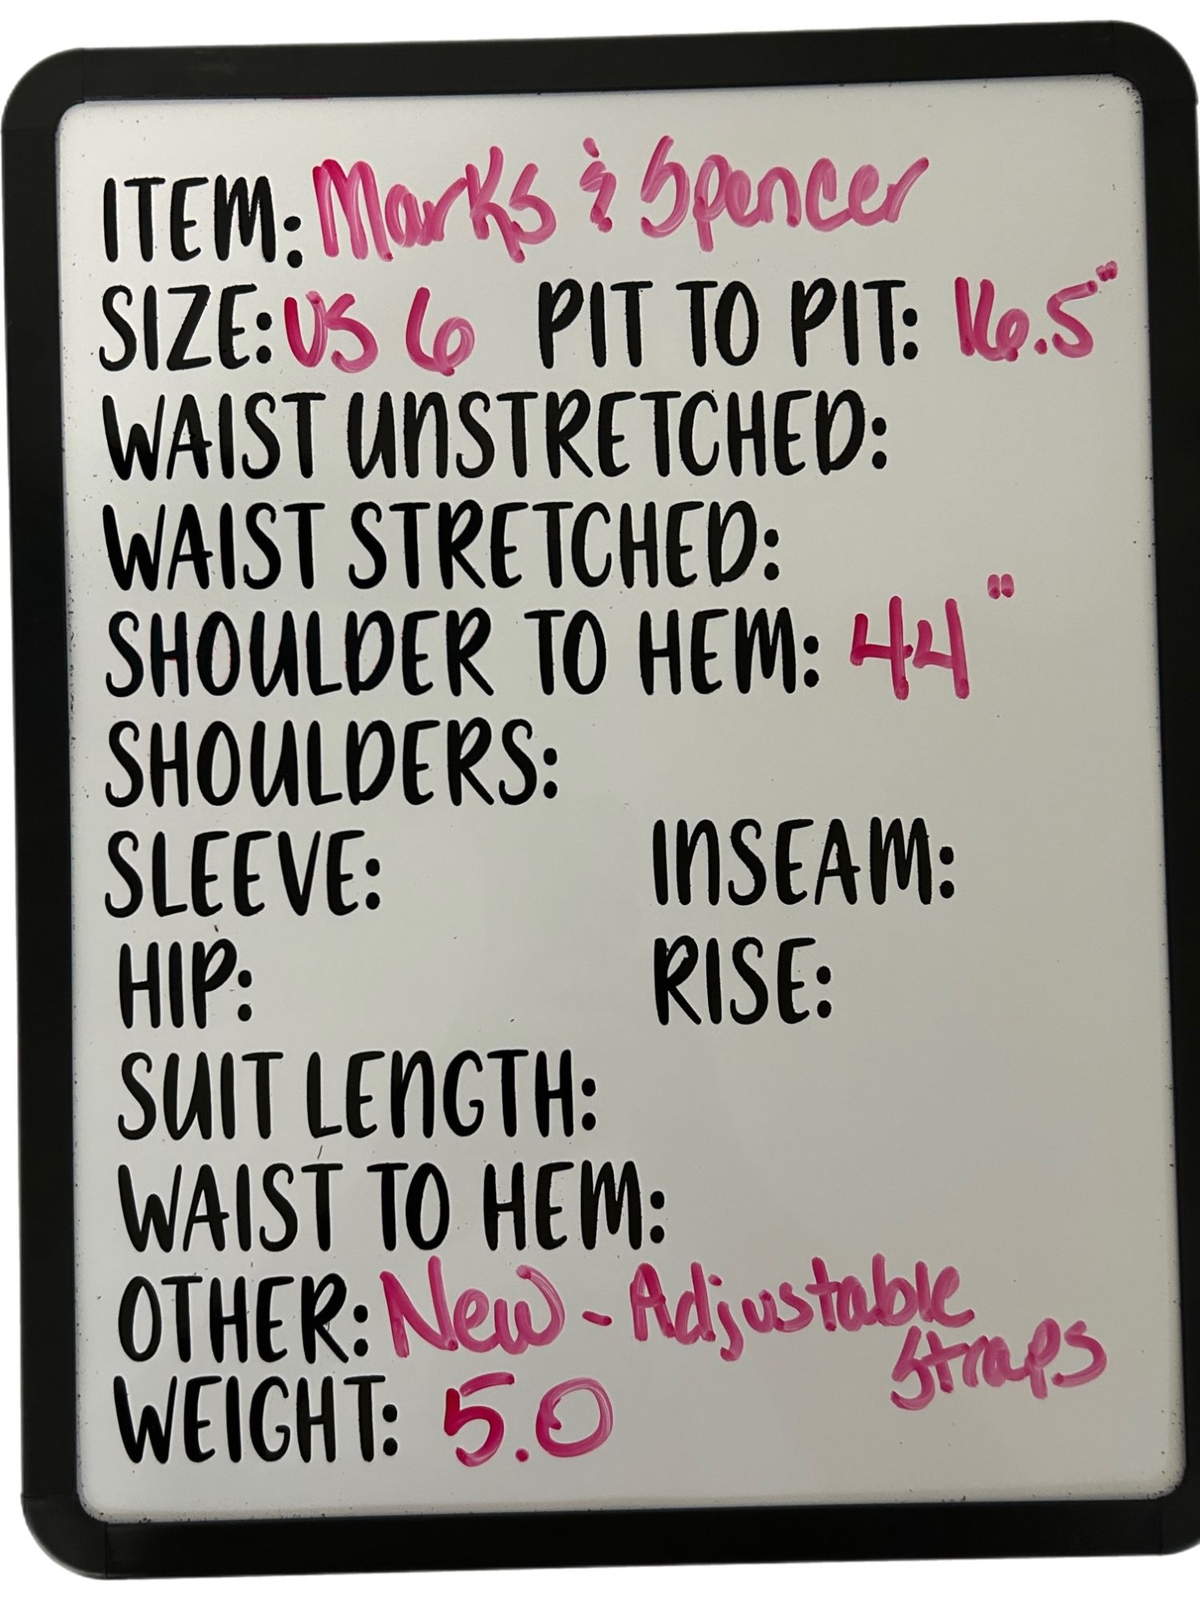 ITEM: Marks & Spencer
SIZE: US 6 PIT TO PIT: 16.5"
WAIST UNSTRETCHED:
WAIST STRETCHED:
SHOULDER TO HEM: 44"
SHOULDERS:
SLEEVE: INSEAM:
HIP: RISE:
SUIT LENGTH:
WAIST TO HEM:
OTHER: New - Adjustable
Straps
WEIGHT: 5.0